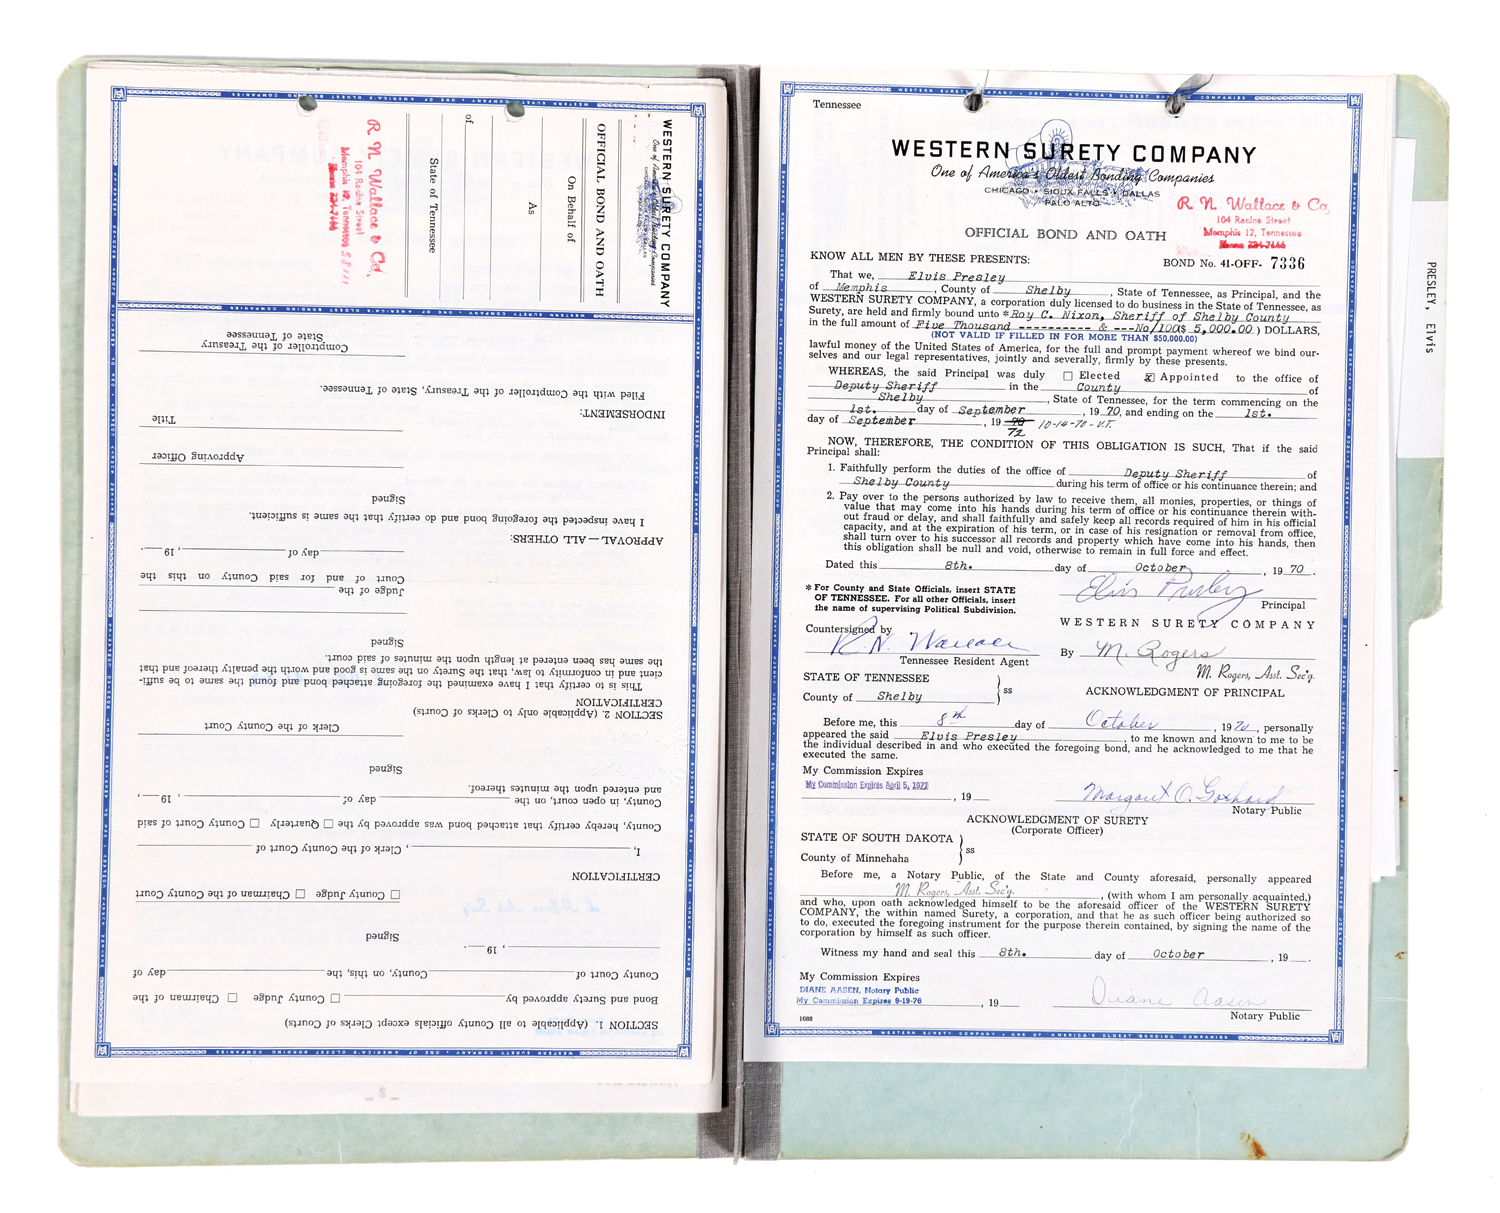 WESTERN SURETY COMPANY
One of America's Oldest Bonding Companies
CHICAGO • SIOUX FALLS • DALLAS
PALO ALTO
OFFICIAL BOND AND OATH
On Behalf of
As
of
State of Tennessee
R. N. Wallace & Co.
104 Racine Street
Memphis 12, Tennessee 38111
Comptroller of the Treasury
State of Tennessee
Filed with the Comptroller of the Treasury, State of Tennessee.
INDORSEMENT:
Title
Approving Officer
Signed
I have inspected the foregoing bond and do certify that the same is sufficient.
APPROVAL—ALL OTHERS:
day of , 19 .
Court of and for said County on this the
Judge of the
Signed
the same has been entered at length upon the minutes of said court.
cient and in conformity to law, that the Surety on the same is good and worth the penalty thereof and that
This is to certify that I have examined the foregoing attached bond and found the same to be suffi-
CERTIFICATION
SECTION 2. (Applicable only to Clerks of Courts)
Clerk of the County Court
Signed
and entered upon the minutes thereof.
County, in open court, on the day of , 19 ,
County, hereby certify that attached bond was approved by the ☐ Quarterly ☐ County Court of said
I, , Clerk of the County Court of
CERTIFICATION
☐ County Judge ☐ Chairman of the County Court
Signed
, 19 .
County Court of County, on this, the day of
Bond and Surety approved by ☐ County Judge ☐ Chairman of the
SECTION 1. (Applicable to all County officials except Clerks of Courts)
— 8 —
Tennessee
WESTERN SURETY COMPANY
One of America's Oldest Bonding Companies
CHICAGO • SIOUX FALLS • DALLAS
PALO ALTO
R. N. Wallace & Co.
104 Racine Street
Memphis 12, Tennessee
OFFICIAL BOND AND OATH
BOND No. 41-OFF- 7336
KNOW ALL MEN BY THESE PRESENTS:
That we, Elvis Presley
of Memphis, County of Shelby, State of Tennessee, as Principal, and the
WESTERN SURETY COMPANY, a corporation duly licensed to do business in the State of Tennessee, as
Surety, are held and firmly bound unto *Roy C. Nixon, Sheriff of Shelby County
in the full amount of Five Thousand ---------- & ---No/100($ 5,000.00 ) DOLLARS,
(NOT VALID IF FILLED IN FOR MORE THAN $50,000.00)
lawful money of the United States of America, for the full and prompt payment whereof we bind our-
selves and our legal representatives, jointly and severally, firmly by these presents.
WHEREAS, the said Principal was duly ☐ Elected ☒ Appointed to the office of
Deputy Sheriff in the County of
Shelby, State of Tennessee, for the term commencing on the
1st. day of September, 19 70, and ending on the 1st.
day of September, 19 72 10-14-70-V.T.
NOW, THEREFORE, THE CONDITION OF THIS OBLIGATION IS SUCH, That if the said
Principal shall:
1. Faithfully perform the duties of the office of Deputy Sheriff of
Shelby County during his term of office or his continuance therein; and
2. Pay over to the persons authorized by law to receive them, all monies, properties, or things of
value that may come into his hands during his term of office or his continuance therein with-
out fraud or delay, and shall faithfully and safely keep all records required of him in his official
capacity, and at the expiration of his term, or in case of his resignation or removal from office,
shall turn over to his successor all records and property which have come into his hands, then
this obligation shall be null and void, otherwise to remain in full force and effect.
Dated this 8th. day of October, 19 70.
Elvis Presley
Principal
* For County and State Officials, insert STATE
OF TENNESSEE. For all other Officials, insert
the name of supervising Political Subdivision.
WESTERN SURETY COMPANY
Countersigned by
R. N. Wallace
Tennessee Resident Agent
By M. Rogers
M. Rogers, Asst. Sec'y.
STATE OF TENNESSEE
County of Shelby
ss
ACKNOWLEDGMENT OF PRINCIPAL
Before me, this 8th day of October, 1970, personally
appeared the said Elvis Presley, to me known and known to me to be
the individual described in and who executed the foregoing bond, and he acknowledged to me that he
executed the same.
My Commission Expires
My Commission Expires April 5, 1972
, 19
Margaret O. Goxhard
Notary Public
ACKNOWLEDGMENT OF SURETY
(Corporate Officer)
STATE OF SOUTH DAKOTA
County of Minnehaha
ss
Before me, a Notary Public, of the State and County aforesaid, personally appeared
M. Rogers, Asst. Sec'y. , (with whom I am personally acquainted,)
and who, upon oath acknowledged himself to be the aforesaid officer of the WESTERN SURETY
COMPANY, the within named Surety, a corporation, and that he as such officer being authorized so
to do, executed the foregoing instrument for the purpose therein contained, by signing the name of the
corporation by himself as such officer.
Witness my hand and seal this 8th. day of October, 19 .
My Commission Expires
DIANE AASEN, Notary Public
My Commission Expires 9-19-76
, 19
Diane Aasen
Notary Public
1088
PRESLEY, Elvis